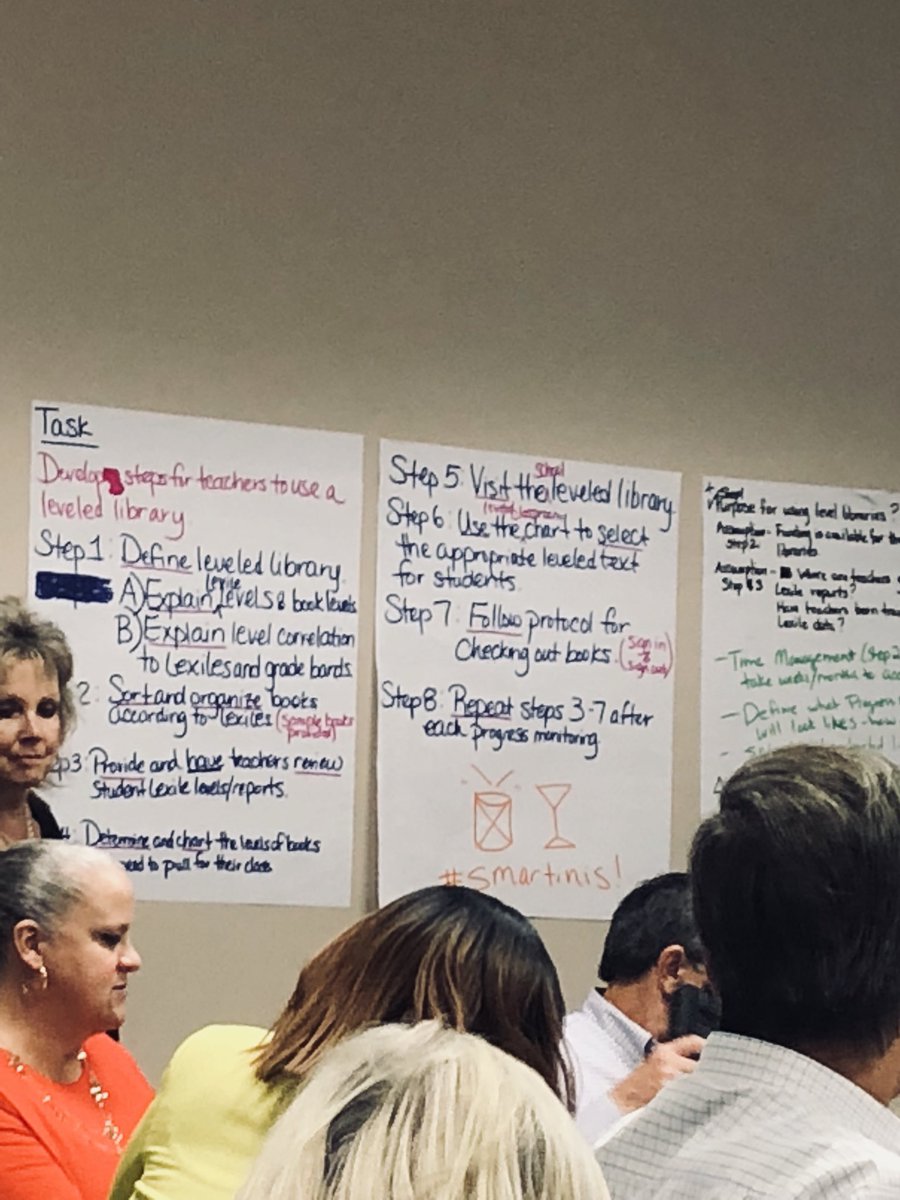 Task
Develop steps for teachers to use a
leveled library
Step 1: Define leveled library.
A) Explain lexile levels & book levels
B) Explain level correlation
to Lexiles and grade bands
2: Sort and organize books
according to lexiles (sample books
provided)
p3: Provide and have teachers review
Student Lexile levels/reports.
4: Determine and chart the levels of books
need to pull for their class
Step 5: Visit the school leveled library
Step 6: Use the chart to select
the appropriate leveled text
for students.
Step 7: Follow protocol for
Checking out books. (sign in
&
sign out)
Step 8: Repeat steps 3-7 after
each progress monitoring.
#smartinis!
Purpose for using level libraries?
Assumption - Funding is available for the
Step 2 libraries
Assumption - Where are teachers
Step #3 Lexile reports?
Have teachers been
Lexile data?
- Time Management (Step 2
take weeks/months to
- Define what Progress
will look like - how